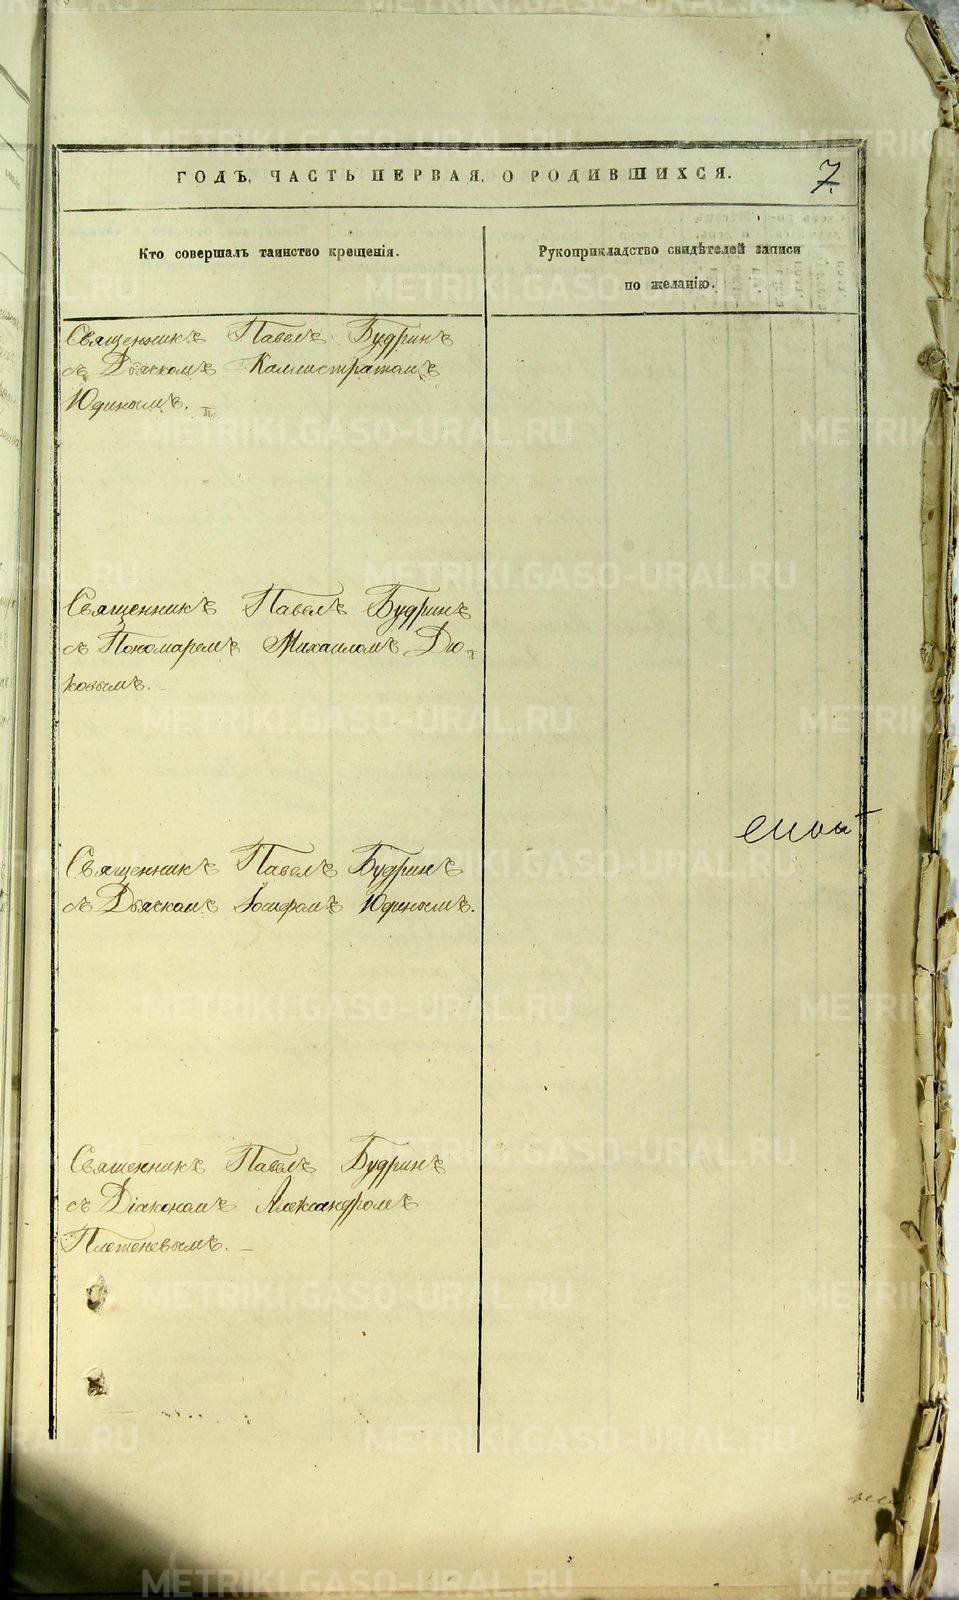 ГОДЪ, ЧАСТЬ ПЕРВАЯ, О РОДИВШИХСЯ.
7.
Кто совершалъ таинство крещенія.
Рукоприкладство свидѣтелей записи
по желанію.
Священникъ Павелъ Будринъ
съ Дьячкомъ Каллистратомъ
Юдинымъ.
Священникъ Павелъ Будринъ
съ Пономаремъ Михаиломъ Дю-
ковымъ.
Священникъ Павелъ Будринъ
съ Дьячкомъ Іосифомъ Юдинымъ.
Священникъ Павелъ Будринъ
съ Діакономъ Александромъ
Плетеневымъ.
METRIKI.GASO-URAL.RU